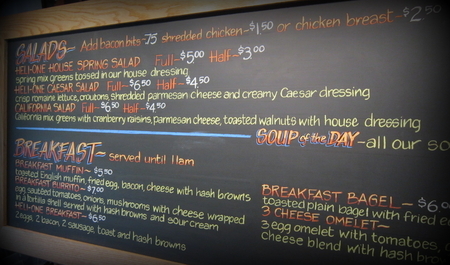 SALADS~ Add bacon bits-.75 shredded chicken~$1.50 or chicken breast~$2.50
HELI-ONE HOUSE SPRING SALAD Full~$5.00 Half~$3.00
spring mix greens tossed in our house dressing
HELI-ONE CAESAR SALAD Full~$6.50 Half~$4.50
crisp romaine lettuce, croutons, shredded parmesan cheese and creamy Caesar dressing
CALIFORNIA SALAD Full~$6.50 Half~$4.50
California mix greens with cranberry raisins, parmesan cheese, toasted walnuts with house dressing
SOUP of the DAY~all our so
BREAKFAST~ served until 11am
BREAKFAST MUFFIN~$5.50
toasted English muffin, fried egg, bacon, cheese with hash browns
BREAKFAST BURRITO~$7.00
egg, sautéed tomatoes, onions, mushrooms with cheese wrapped
in a tortilla shell served with hash browns and sour cream
HELI-ONE BREAKFAST~$6.50
2 eggs, 2 bacon, 2 sausage, toast and hash browns
BREAKFAST BAGEL~$6.0
toasted plain bagel with fried e
3 CHEESE OMELET~
3 egg omelet with tomatoes,
cheese blend with hash br